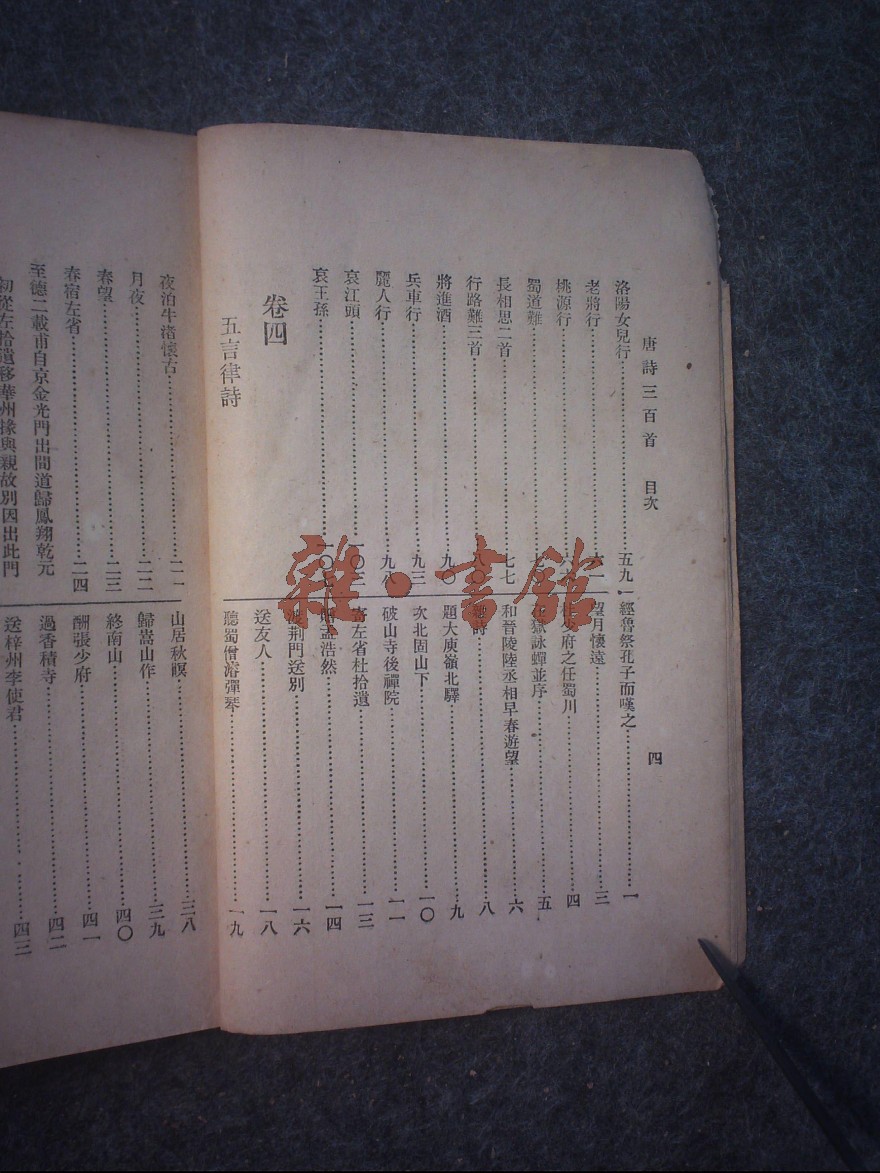 唐詩三百首 目次
四
洛陽女兒行 五九
老將行
桃源行
蜀道難
長相思二首 七七
行路難三首
將進酒 九〇
兵車行 九三
麗人行 九八
哀江頭
哀王孫
卷四
五言律詩
經魯祭孔子而嘆之 一
望月懷遠 三
少府之任蜀川 四
獄詠蟬並序 五
和晉陵陸丞相早春遊望 六
詩 八
題大庾嶺北驛 九
次北固山下 一〇
破山寺後禪院 一一
寄左省杜拾遺 一三
孟浩然 一四
渡荆門送別 一六
送友人 一八
聽蜀僧濬彈琴 一九
夜泊牛渚懷古 二一
月夜 二二
春望 二三
春宿左省 二四
至德二載甫自京金光門出間道歸鳳翔乾元
初從左拾遺移華州掾與親故別因出此門
山居秋暝 三八
歸嵩山作 三九
終南山 四〇
酬張少府 四一
過香積寺 四二
送梓州李使君 四三
雜·書館